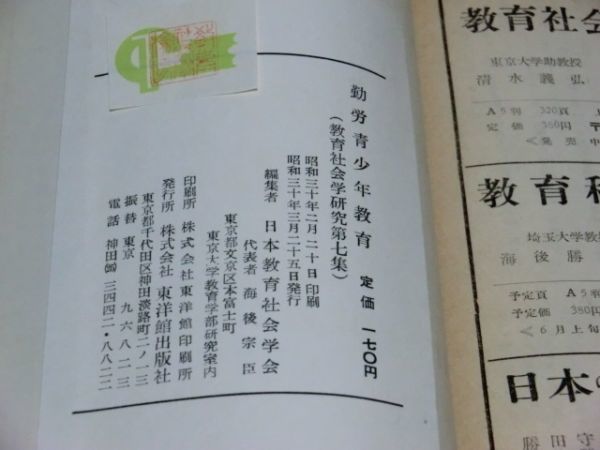 勤労青少年教育 定価 一七〇円
(教育社会学研究第七集)
昭和三十年二月二十日印刷
昭和三十年三月二十五日発行
編集者 日本教育社会学会
代表者 海後宗臣
東京都文京区本富士町
東京大学教育学部研究室内
印刷所 株式会社東洋館印刷所
発行所 株式会社東洋館出版社
東京都千代田区神田淡路町二ノ一三
振替東京 九六八二三
電話 神田㉕ 三四四二・八八二二
教育社会
東京大学助教授
清水義弘
A5判 320頁 上
定価 360円 〒
<発売中
教育科
埼玉大学教
海後勝
予定頁 A5判
予定価 380円
<6月上旬
日本の
勝田守